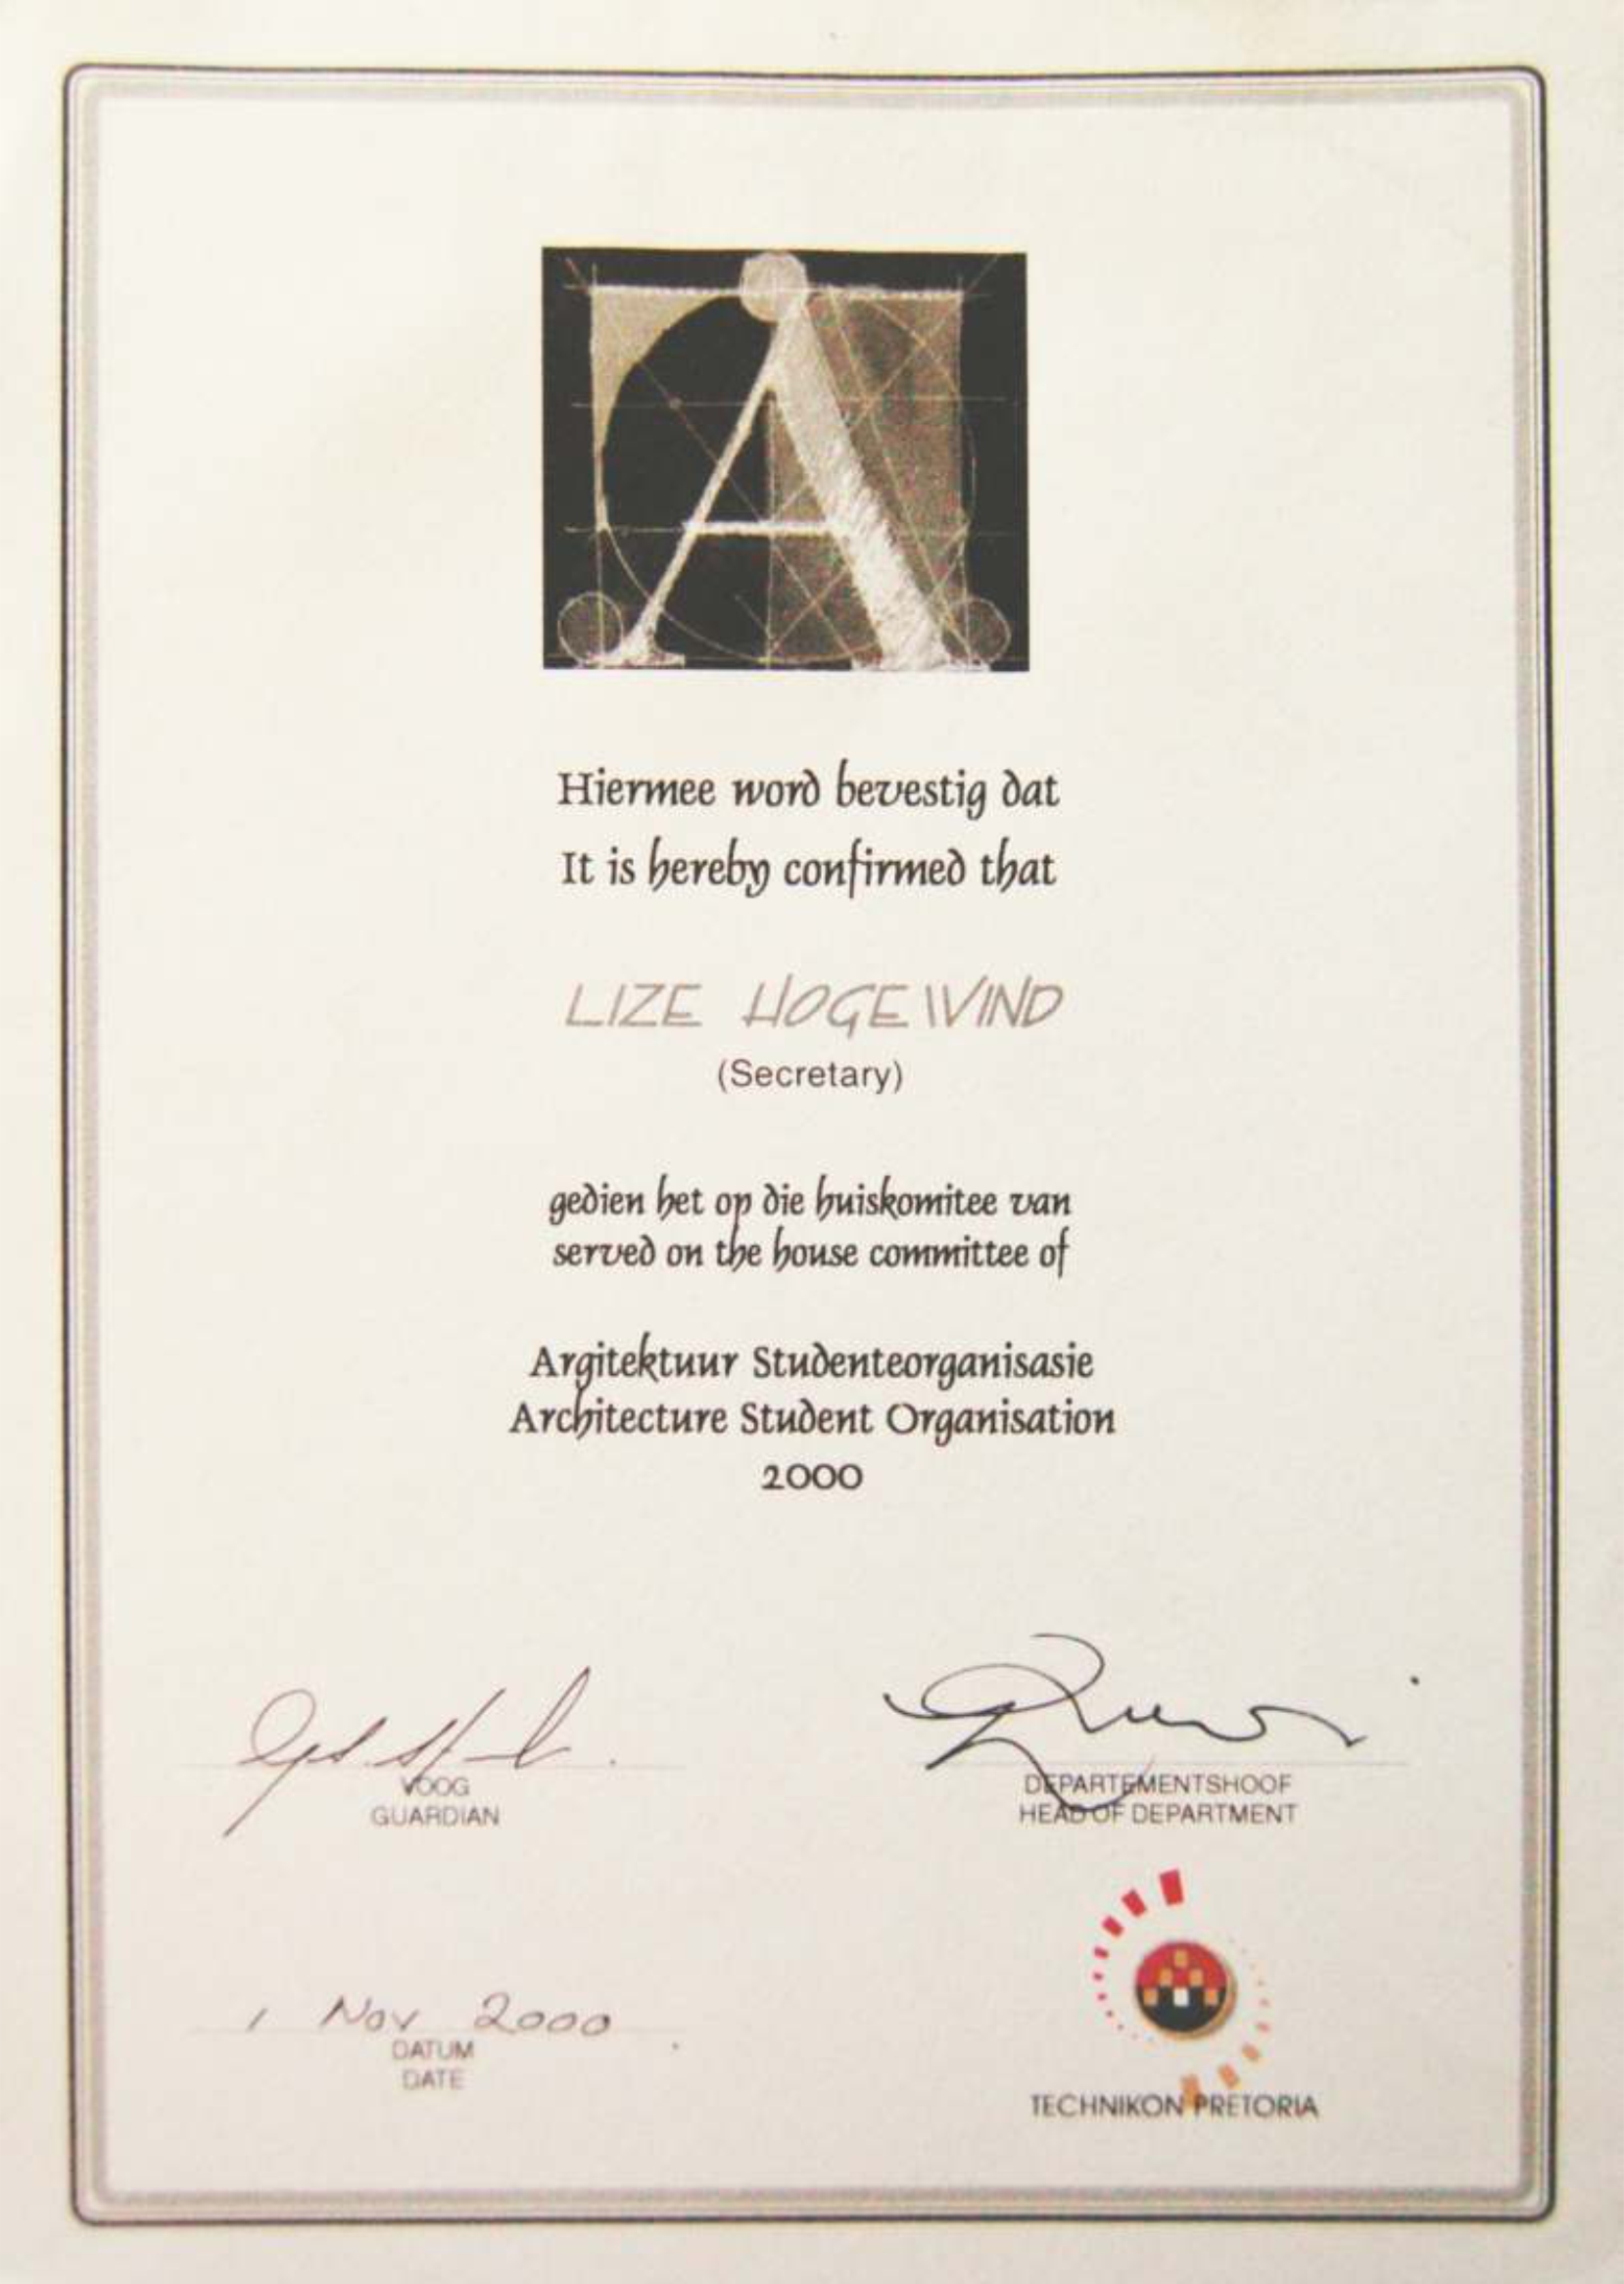 Hiermee word bevestig dat
It is hereby confirmed that
LIZE HOGEWIND
(Secretary)
gedien het op die huiskomitee van
served on the house committee of
Argitektuur Studenteorganisasie
Architecture Student Organisation
2000
VOOG
GUARDIAN
DEPARTEMENTSHOOF
HEAD OF DEPARTMENT
1 Nov 2000
DATUM
DATE
TECHNIKON PRETORIA